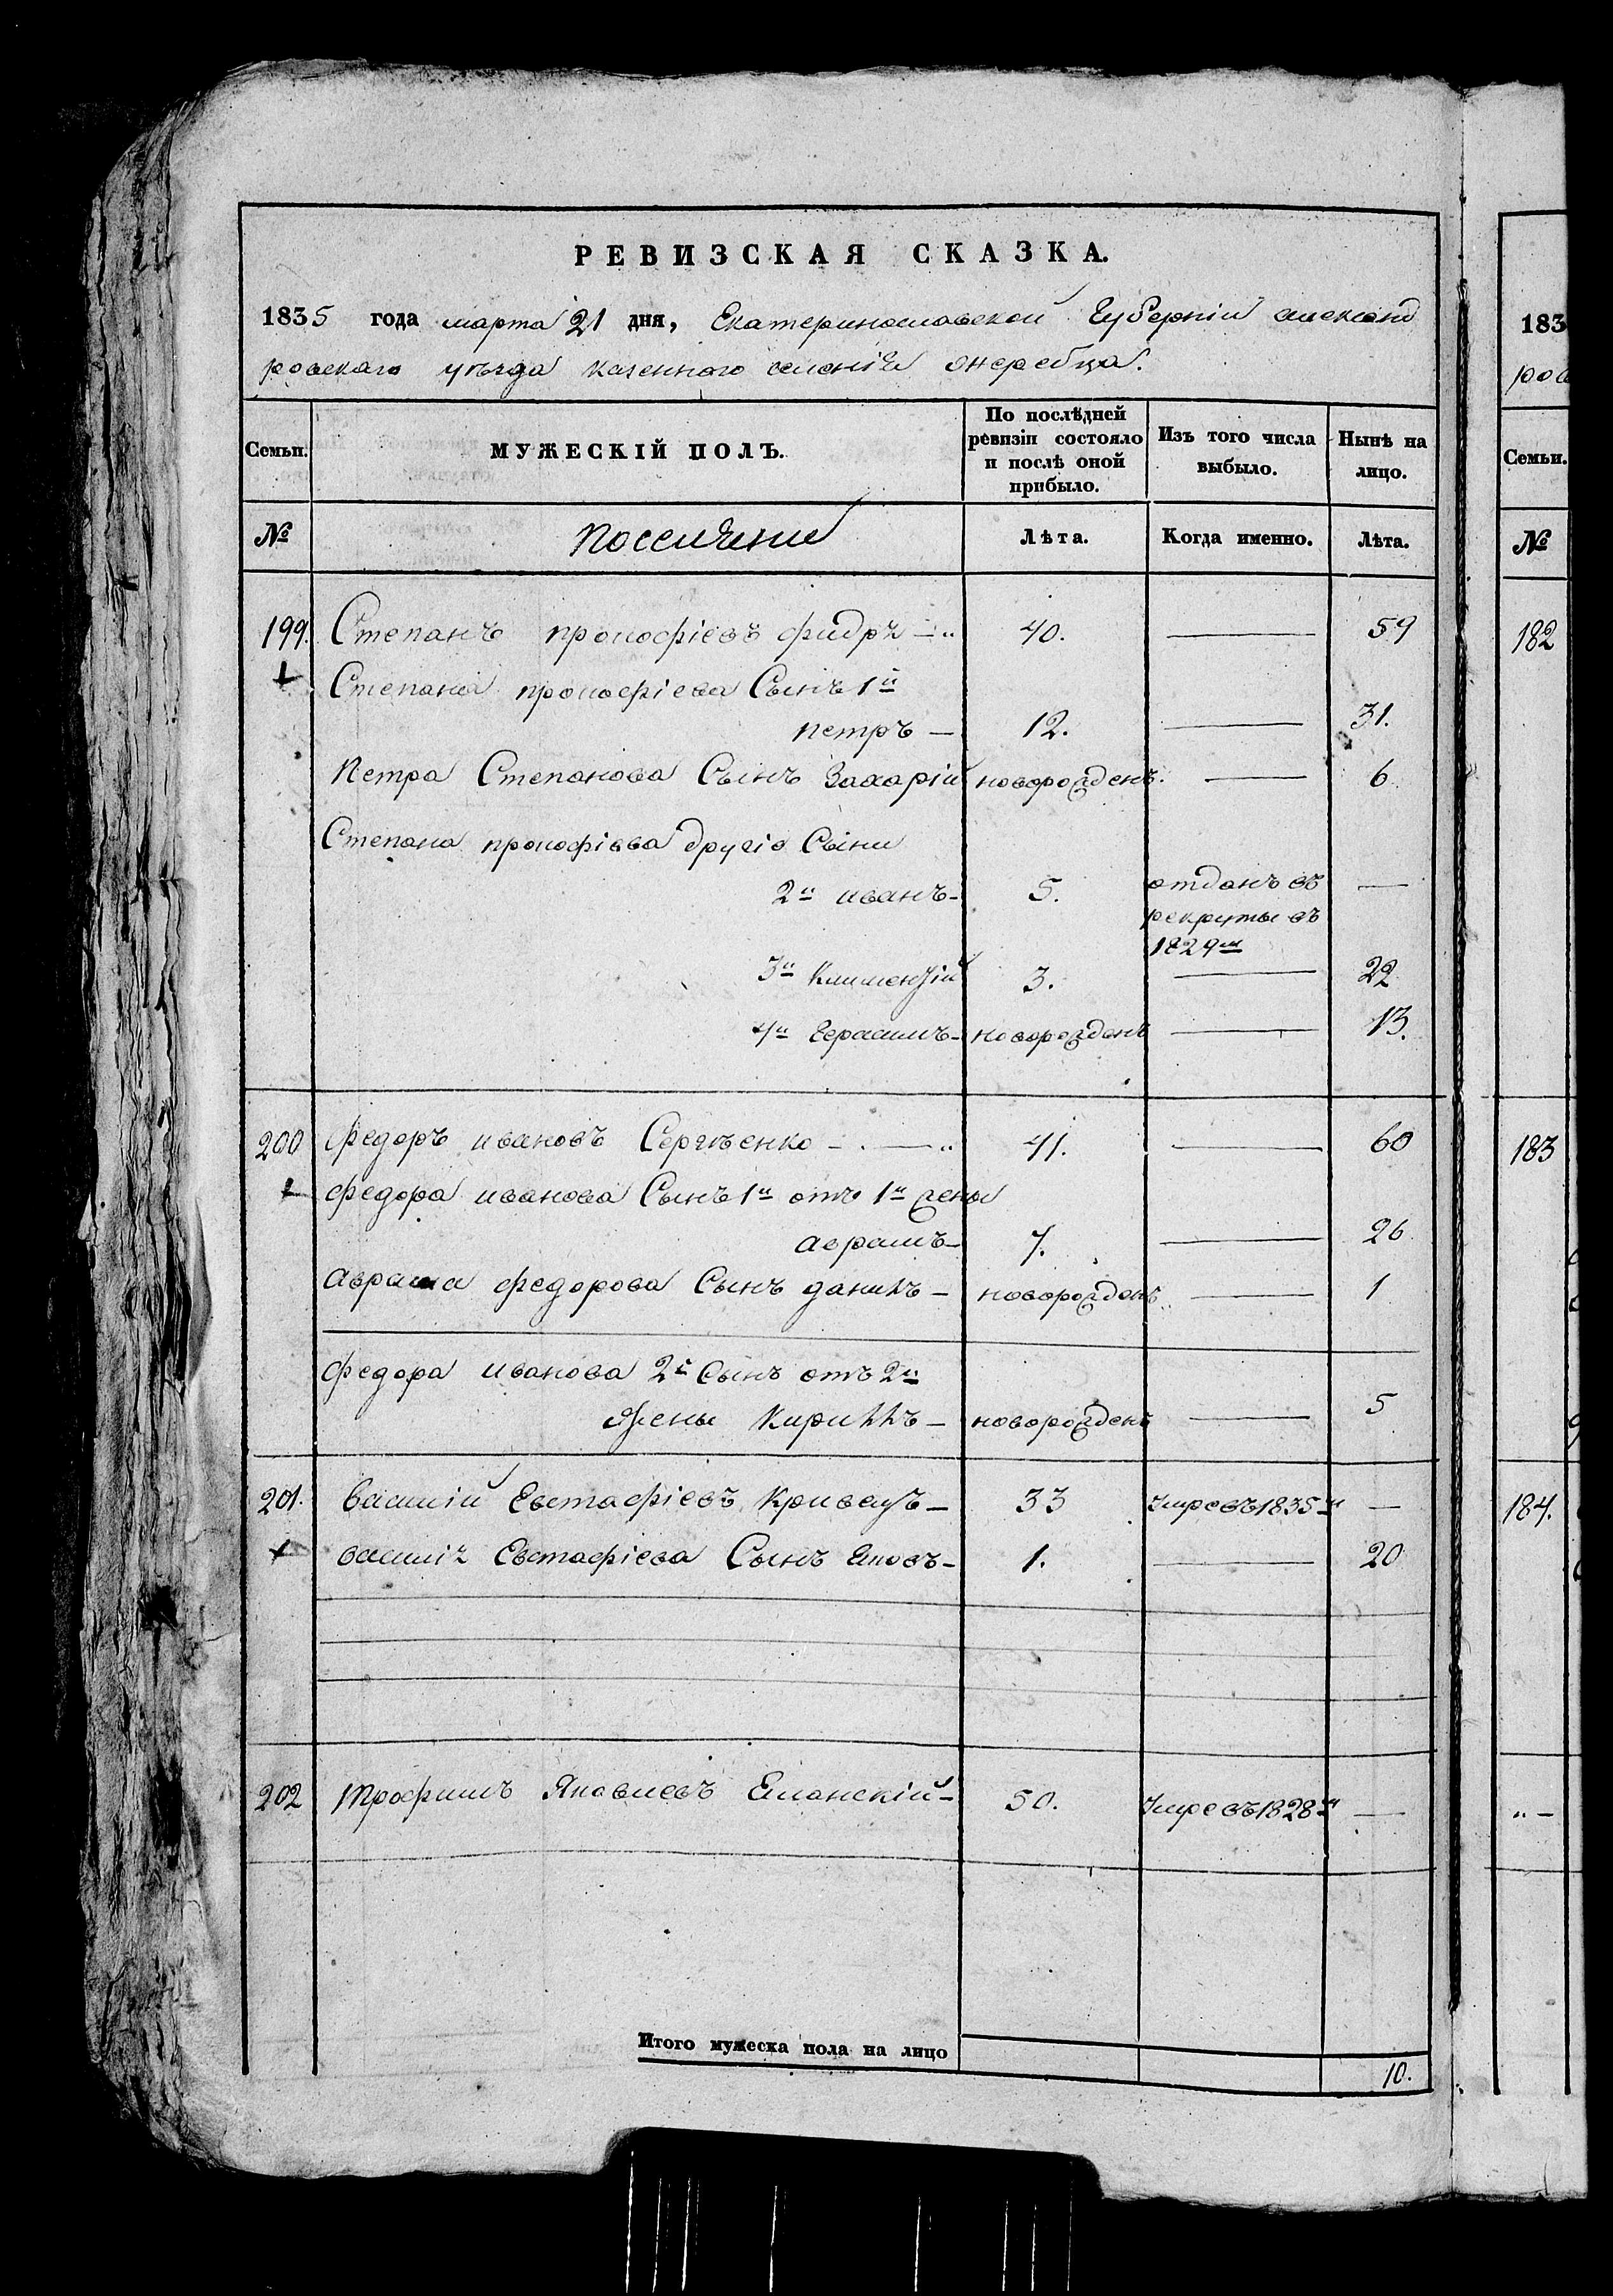 РЕВИЗСКАЯ СКАЗКА.
1835 года марта 21 дня, Екатеринославской Губерніи александ
ровскаго уѣзда казенного селенія жеребца.
Семьи. МУЖЕСКІЙ ПОЛЪ. По послѣдней ревизіи состояло и послѣ оной прибыло. Изъ того числа выбыло. Нынѣ на лицо.
№ Поселяне Лѣта. Когда именно. Лѣта.
199. Степанъ прокофіевъ 40. — 59
Степана прокофіева Сынъ 1й
петръ — 12. — 31.
Петра Степанова Сынъ Захарій новорожденъ. — 6
Степана прокофіева другіе Сыни
2й иванъ - 5. отданъ въ рекруты въ 1829м —
3й Климентій 3. — 22
4й Герасимъ - новорожденъ — 13.
200 федоръ ивановъ Сергѣенко - 41. — 60
федора иванова Сынъ 1й отъ 1й жены
аврамъ - 7. — 26
аврама федорова Сынъ данилъ - новорожденъ — 1
федора иванова 2й Сынъ отъ 2й
жены Кириллъ - новорожденъ — 5
201. Василій Евстафіевъ Кривецъ - 33 Умре въ 1835м —
василія Евстафіева Сынъ Яковъ - 1. — 20
202 Трофимъ Яковлевъ 50. Умре въ 1828м —
Итого мужеска пола на лицо 10.
183
ров
Семьи.
№
182
183
184.